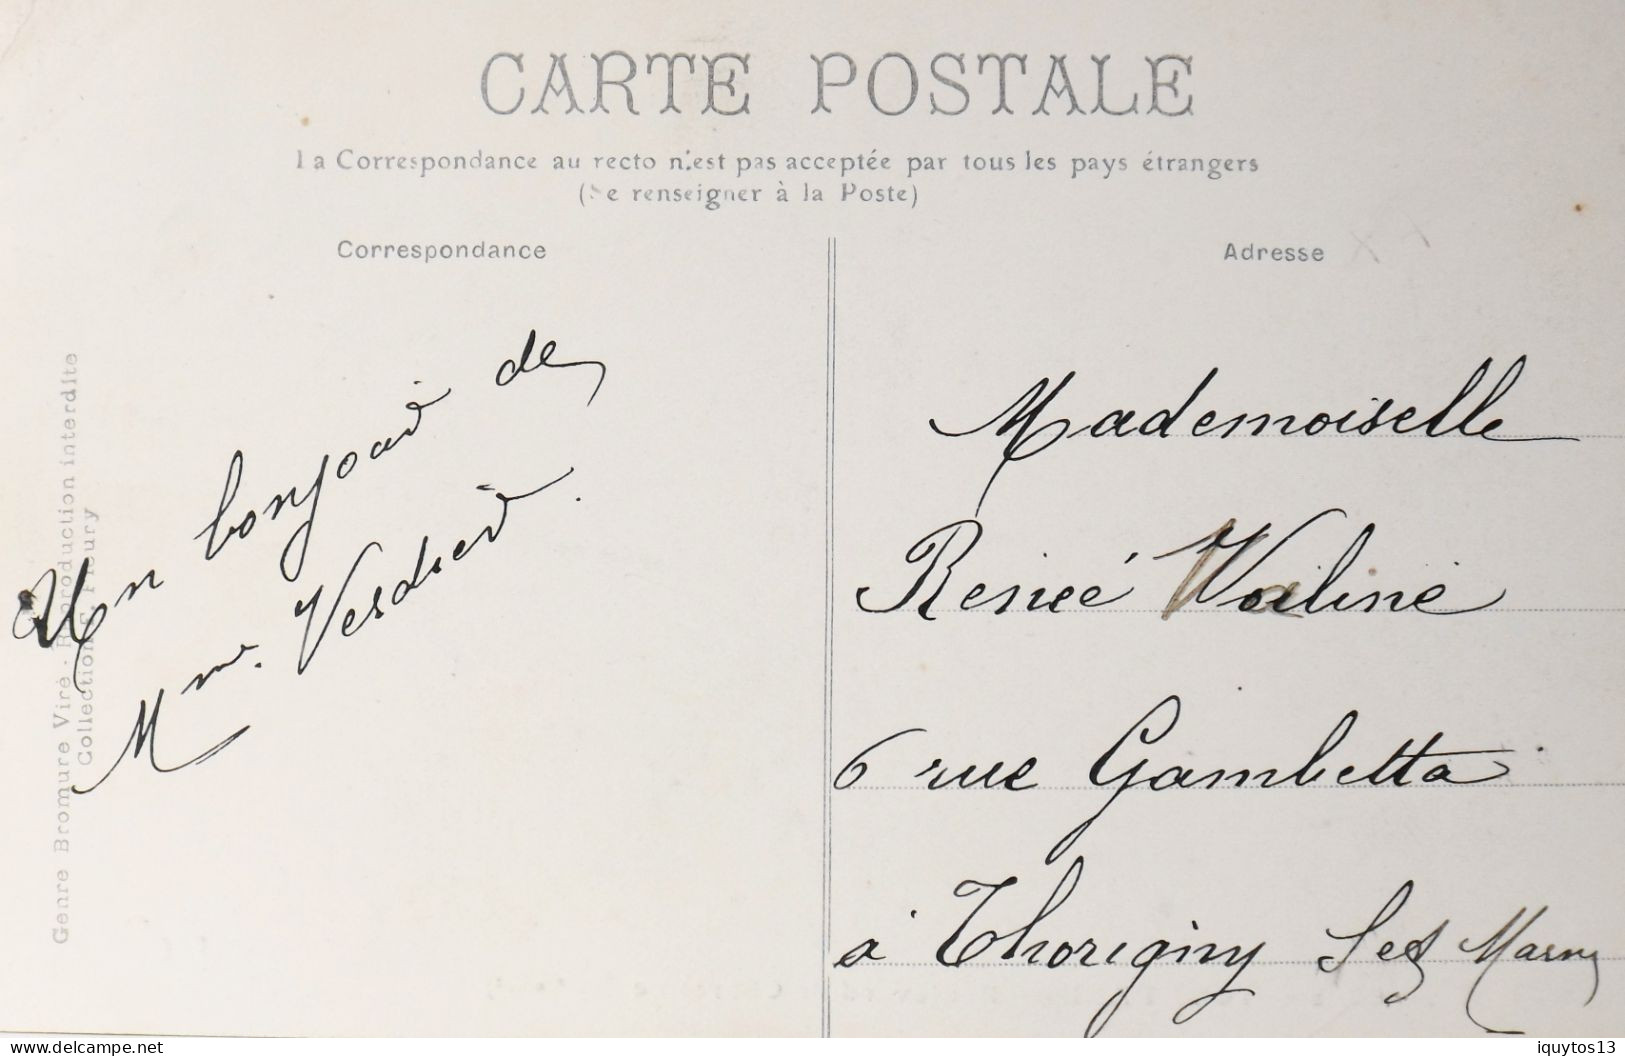 CARTE POSTALE
La Correspondance au recto n'est pas acceptée par tous les pays étrangers
(Se renseigner à la Poste)
Correspondance
Adresse
Un bonjour de
Mme. Verdier.
Mademoiselle
Renée Valine
6 rue Gambetta
à Thorigny S et Marne
Genre Bromure Viré - Reproduction interdite
Collection C. Fleury
delcampe.net
iquytos13